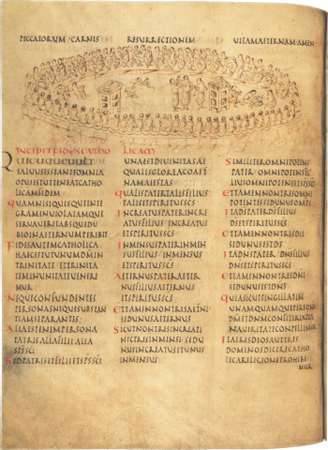 PECCATORUM CARNIS RESURRECTIONEM UITAM AETERNAM AMEN
INCIPIT FIDES CATHOLICAM
QUICUMQUE UULT
SALUUS ESSE ANTE OMNIA
OPUS EST UT TENEAT CATHO
LICAM FIDEM
QUAM NISI QUISQUE INTE
GRAM INUIOLATAMQUE
SERUAUERIT ABSQUE DU
BIO IN AETERNUM PERIBIT
FIDES AUTEM CATHOLICA
HAEC EST UT UNUM DM IN
TRINITATE ET TRINITA
TEM IN UNITATE UENERE
MUR
NEQUE CONFUNDENTES
PERSONAS NEQUE SUBSTAN
TIAM SEPARANTES
ALIA EST ENIM PERSONA
PATRIS ALIA FILII ALIA
SPS SCI
SED PATRIS ET FILII ET SPS SCI
UNA EST DIUINITAS AE
QUALIS GLORIA COAETE
NA MAIESTAS
QUALIS PATER TALIS FILIUS
TALIS ET SPIRITUS SCS
INCREATUS PATER INCRE
ATUS FILIUS INCREATUS
ET SPIRITUS SCS
INMENSUS PATER INMEN
SUS FILIUS INMENSUS
ET SPIRITUS SCS
AETERNUS PATER AETER
NUS FILIUS AETERNUS
ET SPIRITUS SCS
ET TAMEN NON TRES AETERNI
SED UNUS AETERNUS
SICUT NON TRES INCREATI
NEC TRES INMENSI SED U
NUS INCREATUS ET UNUS
INMENSUS
SIMILITER OMNIPOTENS
PATER OMNIPOTENS FI
LIUS OMNIPOTENS ET SPS SCS
ET TAMEN NON TRES OMNI
POTENTES SED UNUS OMNIPS
ITA DS PATER DS FILIUS
DS ET SPIRITUS SCS
ET TAMEN NON TRES DII
SED UNUS EST DS
ITA DNS PATER DNS FILIUS
DNS ET SPIRITUS SCS
ET TAMEN NON TRES DNI
SED UNUS EST DNS
QUIA SICUT SINGILLATIM
UNAMQUAMQUE PERSONA
DM ET DNM CONFITERI XPIA
NA UERITATE CONPELLIMUR
ITA TRES DEOS AUT TRES
DOMINOS DICERE CATHO
LICA RELIGIONE PROHIBE
MUR